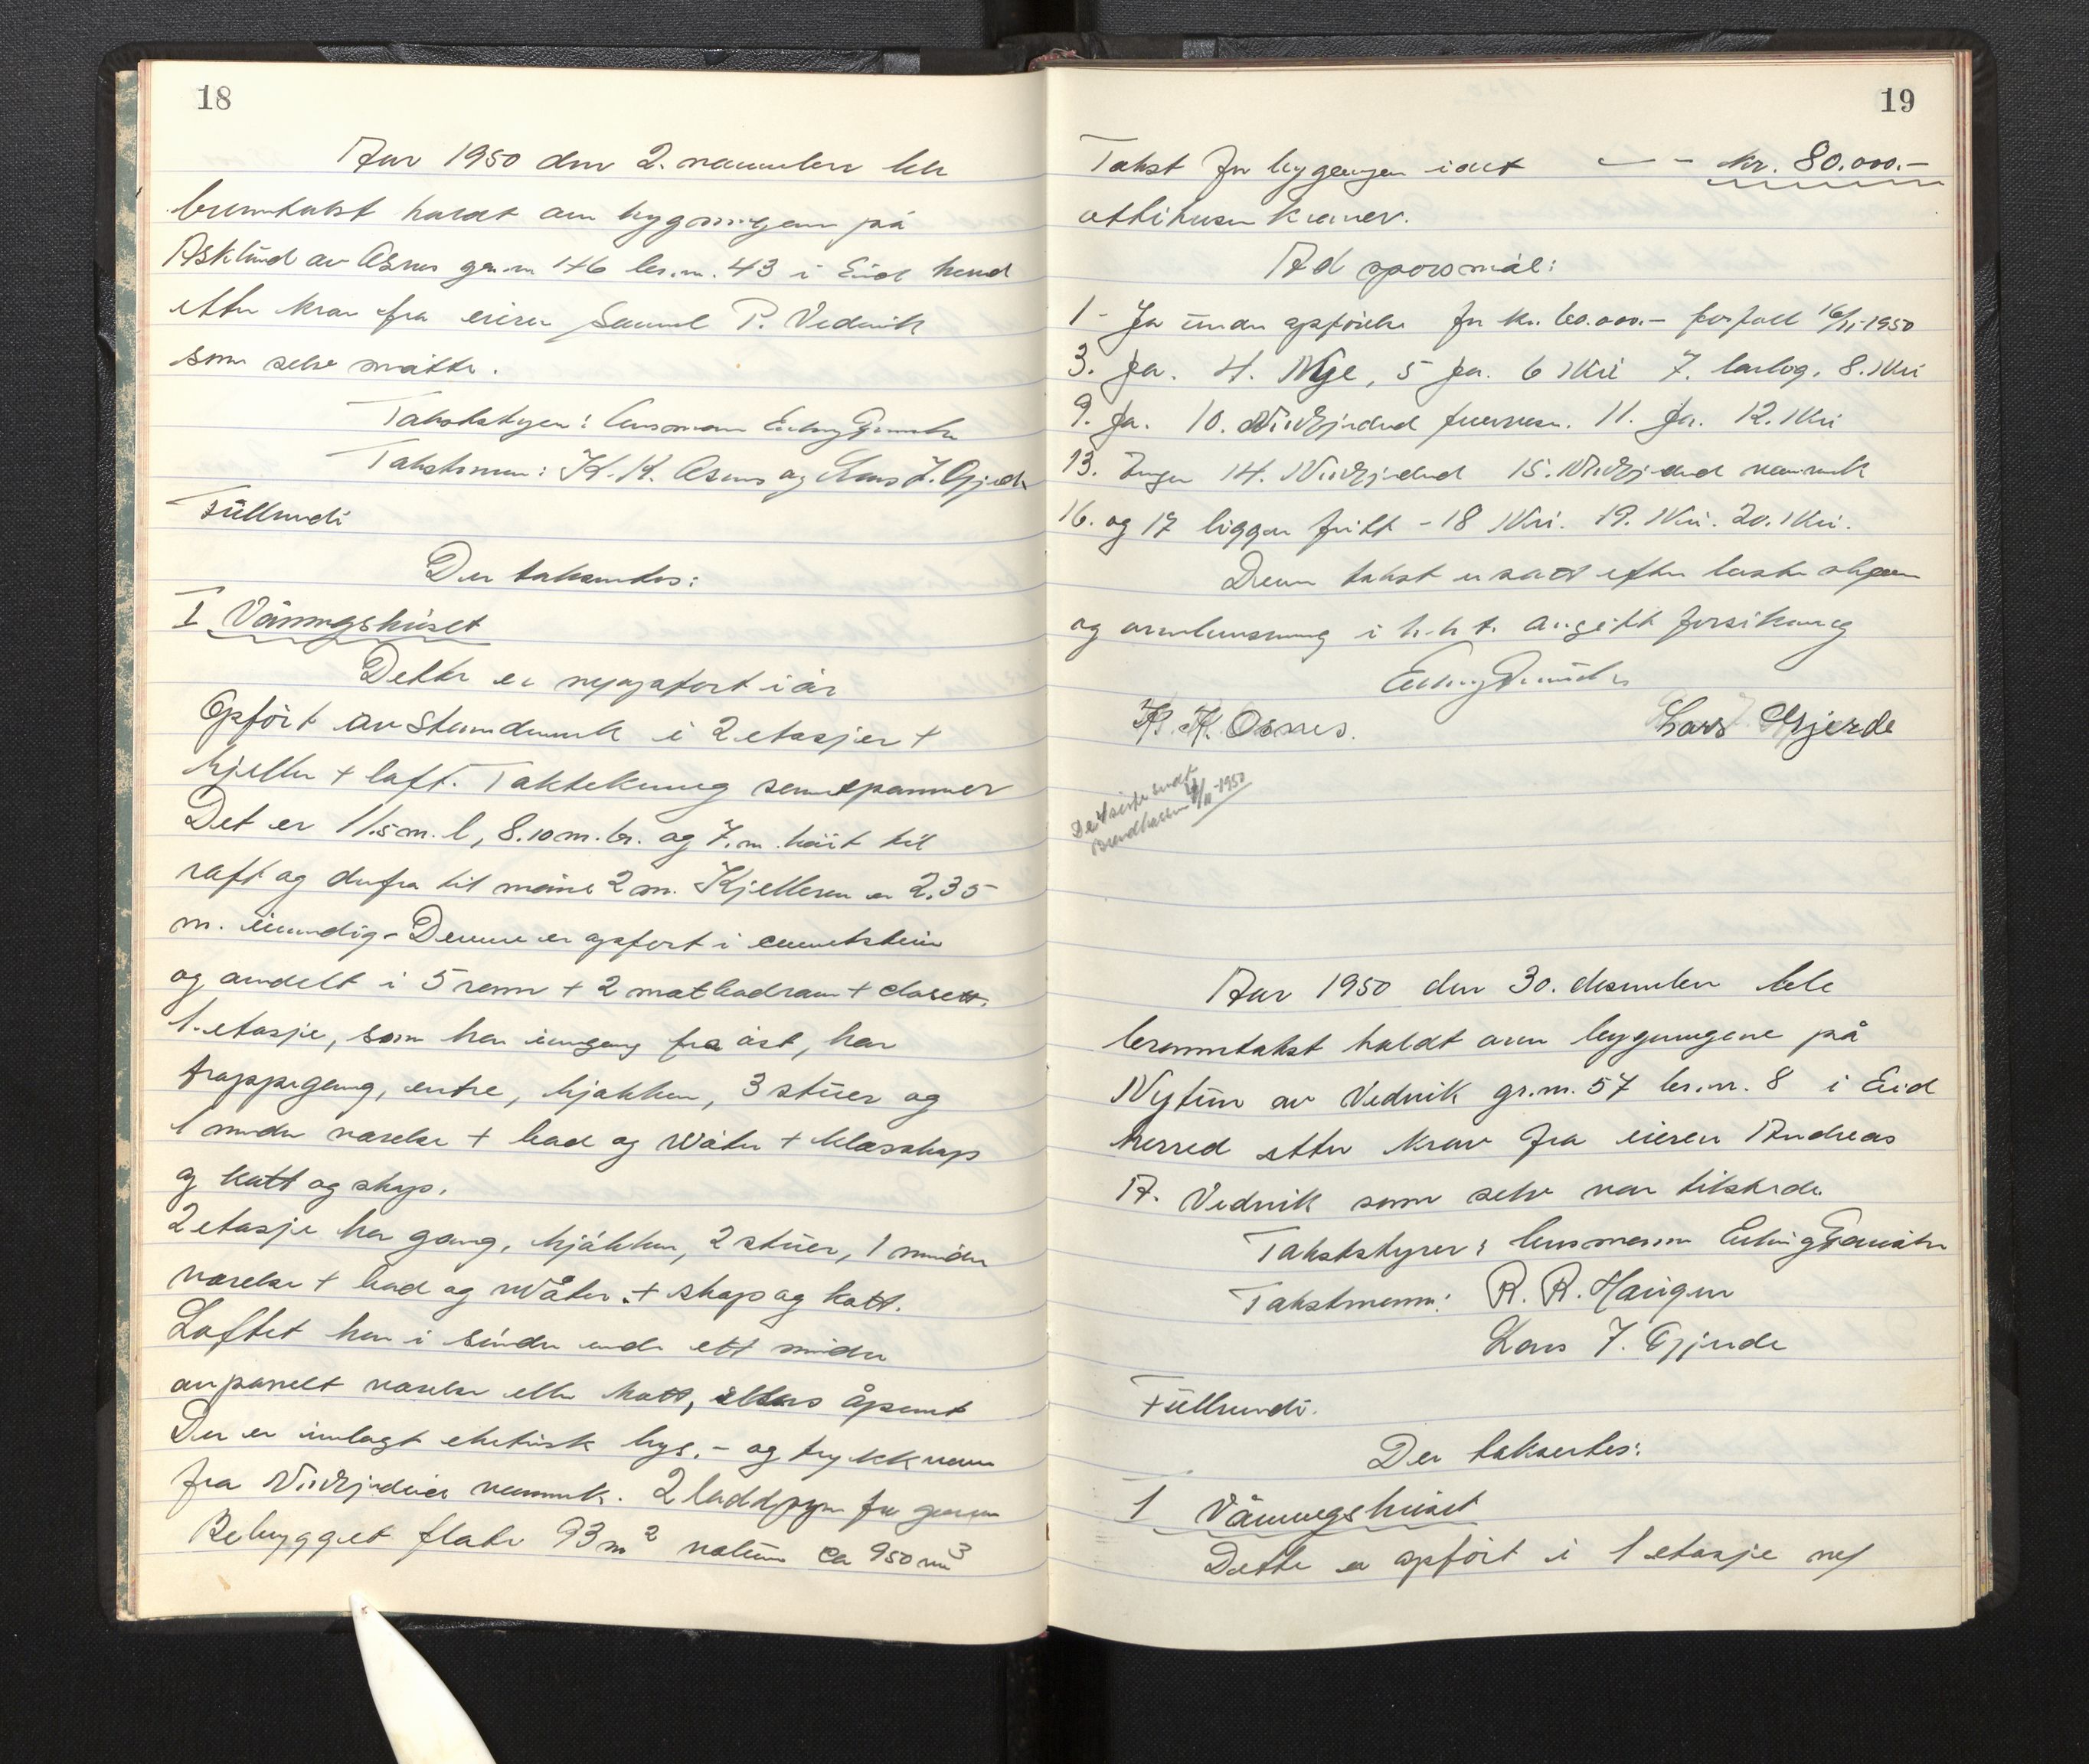 18
Aar 1950 den 2. november ble
branntakst holdt over bygningen på
Asklund av Osnes gr.nr 146 br.nr. 43 i Eid herred
etter krav fra eieren Samuel P. Vedvik
som selv møtte.
Takststyrer: lensmann
Takstmenn: K. K. Osnes og Lars J. Gjerde
Fullmidi
Der taksertes:
I Våningshuset
Dette er nyoppført i år
Opført av stamdmurk i 2 etasjer +
kjeller + loft. Taktekning
Det er 11.5 m. l, 8.10 m. br. og 7. m. høit til
raft og derfra til møne 2 m. Kjelleren er 2.35
m. innvendig - Denne er opført i cementstein
og avdelt i 5 rom + 2 matbodrom + closett.
1. etasje, som har inngang fra øst, har
trappegang, entre, kjøkken, 3 stuer og
1 mindre værelse + bad og Water + klæsskap
og kott og skap.
2 etasje har gang, kjøkken, 2 stuer, 1 mindre
værelse + bad og Water. + skap og kott.
Loftet har i søndre ende ett mindre
avpanelt værelse eller kott, ellers åpent
Der er innlagt elektrisk lys. - og trykkvann
fra Nordfjordeid vannverk. 2 luddpyper
Bebygget flate 93 m² volum ca 950 m³
19
Takst for bygningen i alt - - kr. 80.000.-
ottitusen kroner.
Ad spørsmål:
1 - Ja under opførelse for kr. 60.000.- forfall 16/11-1950
3. Ja. 4. Nye, 5 Ja. 6 Nei 7. 8. Nei
9. Ja. 10. Nordfjordeid 11. Ja. 12. Nei
13. Ingen 14. Nordfjordeid 15. Nordfjordeid vannverk
16. og 17 ligger fritt - 18 Nei. 19. Nei. 20. Nei.
Denne takst er satt efter beste skjønn
og overbevisning i h.h.t. avgitt forsikring
K. K. Osnes. Lars J. Gjerde
sendt
/11-1950
Aar 1950 den 30. desember ble
branntakst holdt over bygningene på
Nytun av Vedvik gr.nr. 57 br.nr. 8 i Eid
herred etter krav fra eieren Andreas
A. Vedvik som selv var tilstede
Takststyrer: lensmann
Takstmenn: R. R. Haugen
Lars J. Gjerde
Fullmidi.
Der taksertes:
1 Våningshuset
Dette er opført i 1 etasje m/